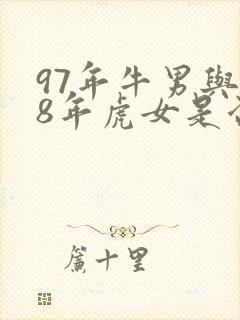 97年牛男與
8年虎女是
簾十里